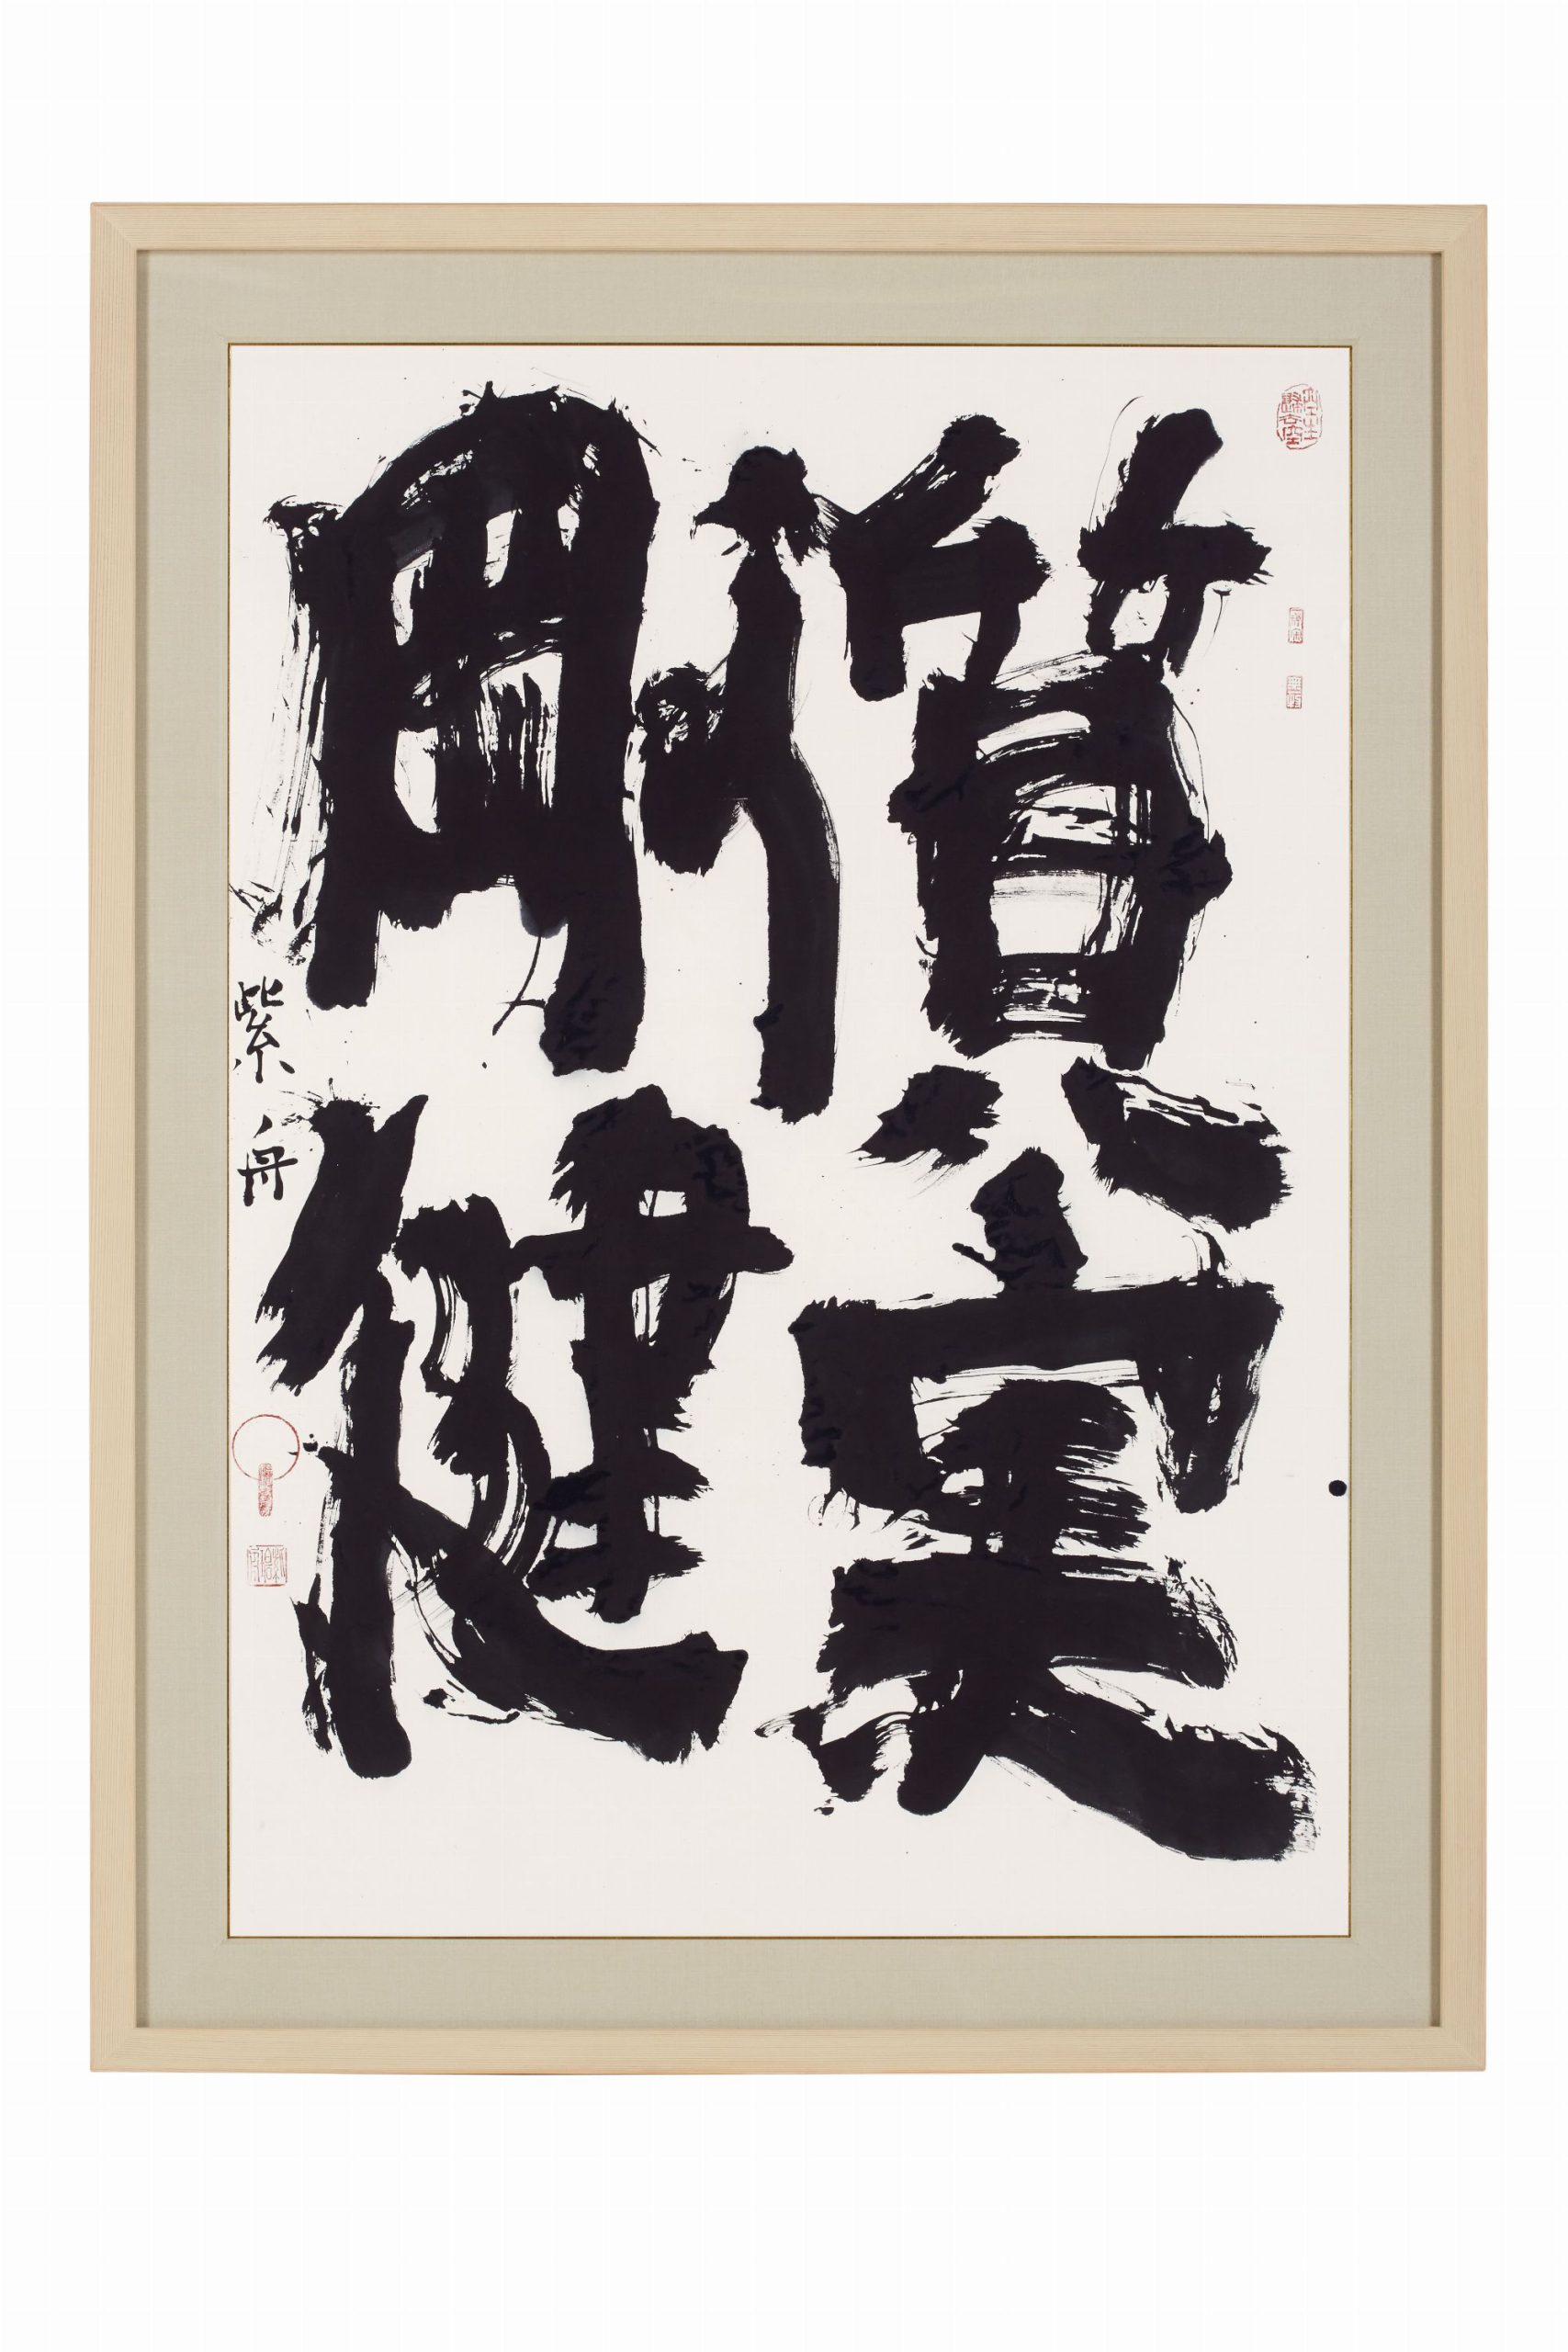 質実
剛健
紫舟